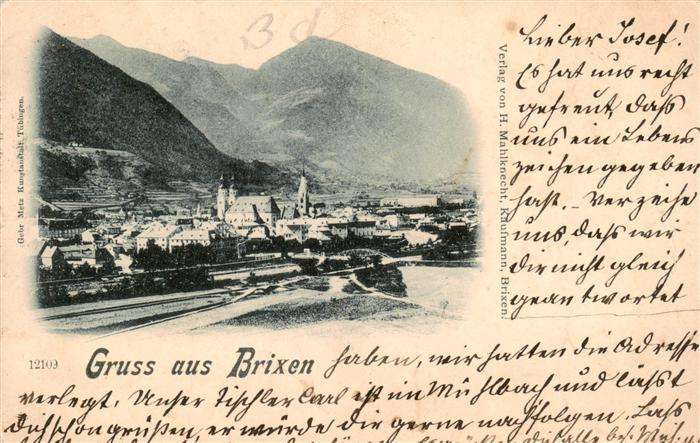 3d
Lieber Josef!
Es hat uns recht
gefreut, daſs
uns ein Lebens
zeichen gegeben
hast. Verzeihe
uns, daſs wir
dir nicht gleich
geantwortet
haben, wir hatten die Adresse
verlegt. Unser Tischler Carl ist im Mühlbach und läſst
dich schon grüßen, er würde dir gerne nachfolgen. Laſs
Gebr Metz Kunstanstalt, Tübingen.
Verlag von H. Mahlknecht, Kaufmann, Brixen.
12109
Gruss aus Brixen